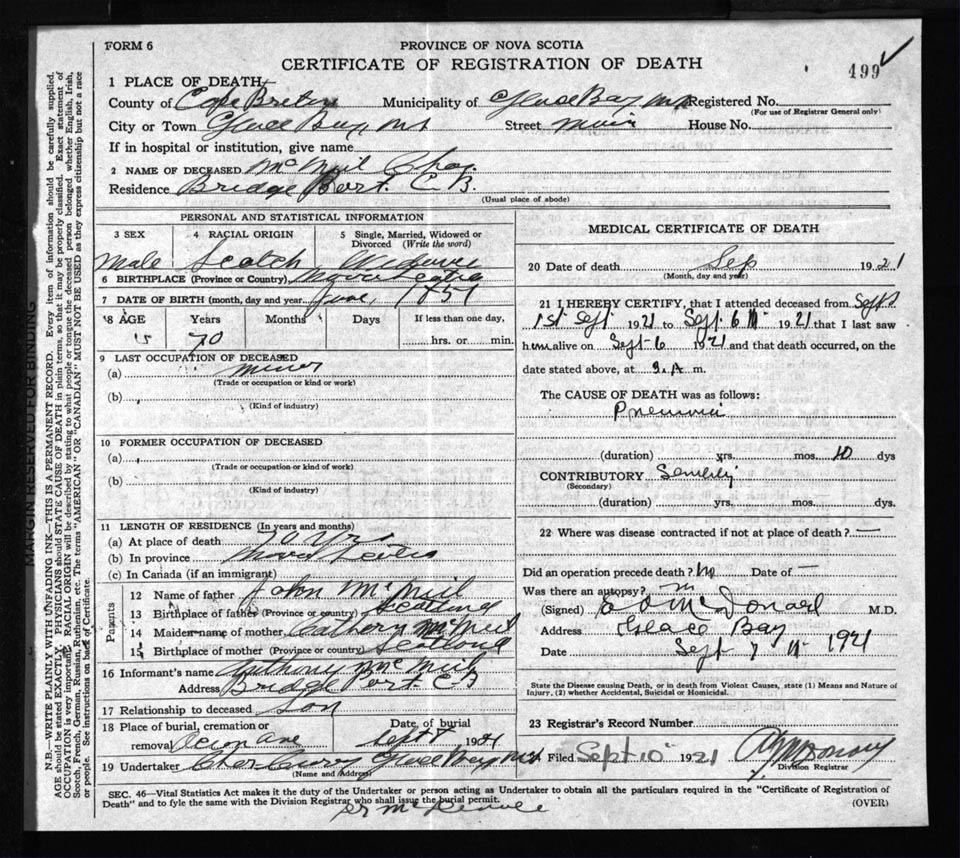 FORM 6
PROVINCE OF NOVA SCOTIA
CERTIFICATE OF REGISTRATION OF DEATH
499
1 PLACE OF DEATH
County of Cape Breton Municipality of Glace Bay Registered No.
(For use of Registrar General only)
City or Town Glace Bay Street Main House No.
If in hospital or institution, give name
2 NAME OF DECEASED McNeil Chas.
Residence Bridge Port C B.
(Usual place of abode)
PERSONAL AND STATISTICAL INFORMATION
3 SEX 4 RACIAL ORIGIN 5 Single, Married, Widowed or Divorced (Write the word)
Male Scotch Widower
6 BIRTHPLACE (Province or Country) Nova Scotia
7 DATE OF BIRTH (month, day and year) June, 1851
8 AGE Years Months Days If less than one day,
70 hrs. or min.
9 LAST OCCUPATION OF DECEASED
(a) Miner
(Trade or occupation or kind or work)
(b)
(Kind of industry)
10 FORMER OCCUPATION OF DECEASED
(a)
(Trade or occupation or kind of work)
(b)
(Kind of industry)
11 LENGTH OF RESIDENCE (In years and months)
(a) At place of death 70 Yrs
(b) In province Nova Scotia
(c) In Canada (if an immigrant)
Parents
12 Name of father John McNeil
13 Birthplace of father (Province or country) Scotland
14 Maiden name of mother Cathery McNeil
15 Birthplace of mother (Province or country) Scotland
16 Informant's name Anthony McNeil
Address Bridge Port C B
17 Relationship to deceased Son
18 Place of burial, cremation or removal Date of burial
Ocean Ave Sept 1921
19 Undertaker Chas Curry Glace Bay
(Name and Address)
MEDICAL CERTIFICATE OF DEATH
20 Date of death Sep 1921
(Month, day and year)
21 I HEREBY CERTIFY, that I attended deceased from Sept
1st Sept 1921 to Sept 6 1921 that I last saw
him alive on Sept 6 1921 and that death occurred, on the
date stated above, at A m.
The CAUSE OF DEATH was as follows:
Pneumonia
(duration) yrs. mos. 10 dys
CONTRIBUTORY Senility
(Secondary)
(duration) yrs. mos. dys.
22 Where was disease contracted if not at place of death? —
Did an operation precede death? No Date of —
Was there an autopsy?
(Signed) McDonald M.D.
Address Glace Bay
Date Sept 7 1921
State the Disease causing Death, or in death from Violent Causes, state (1) Means and Nature of
Injury, (2) whether Accidental, Suicidal or Homicidal.
23 Registrar's Record Number
24 Filed Sept 10 1921
Division Registrar
SEC. 46—Vital Statistics Act makes it the duty of the Undertaker or person acting as Undertaker to obtain all the particulars required in the "Certificate of Registration of
Death" and to fyle the same with the Division Registrar who shall issue the burial permit.
(OVER)
MARGIN RESERVED FOR BINDING
N.B.—WRITE PLAINLY WITH UNFADING INK—THIS IS A PERMANENT RECORD. Every item of information should be carefully supplied.
AGE should be stated EXACTLY. PHYSICIANS should STATE CAUSE OF DEATH in plain terms, so that it may be properly classified. Exact statement of
OCCUPATION is very important. RACIAL ORIGIN will be described by stating to what people or tongue the deceased person belonged whether English, Irish,
Scotch, French, German, Russian, Ruthenian, etc. The terms "AMERICAN" OR "CANADIAN" MUST NOT BE USED as they express citizenship but not a race
or people. See instructions on back of Certificate.